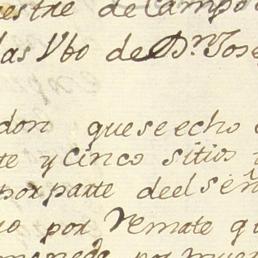 estre de Campo
las Vbo de Dn Jose
don que se echo
te y Cinco sitios
por parte deel señ
por Remate q
por